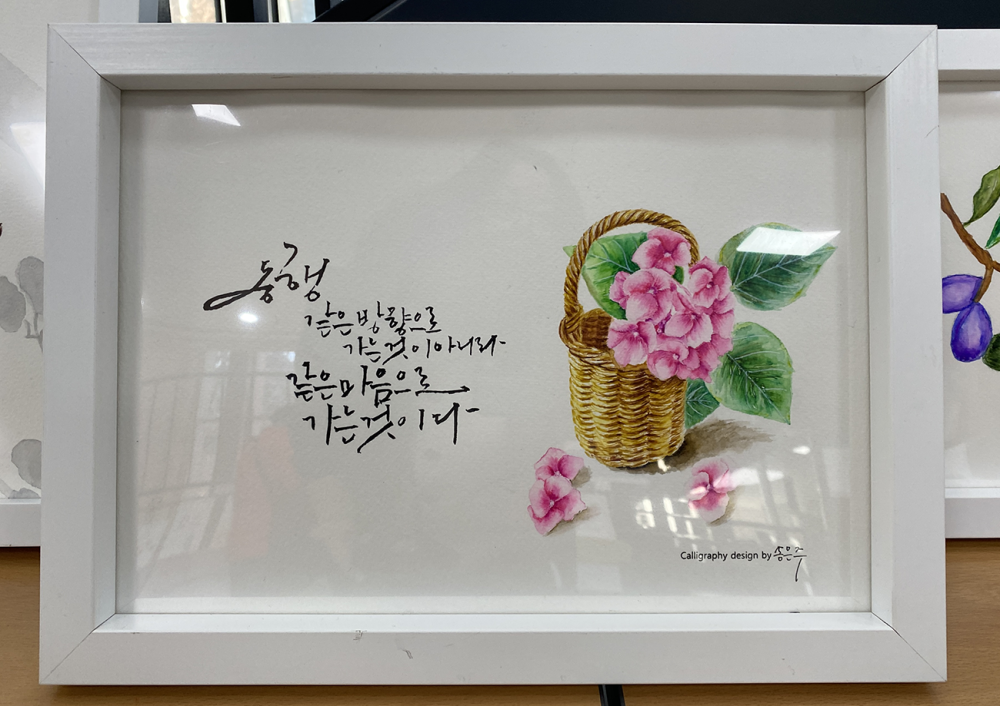 동행
같은 방향으로
가는 것이 아니라
같은 마음으로
가는 것이다
Calligraphy design by 송은주